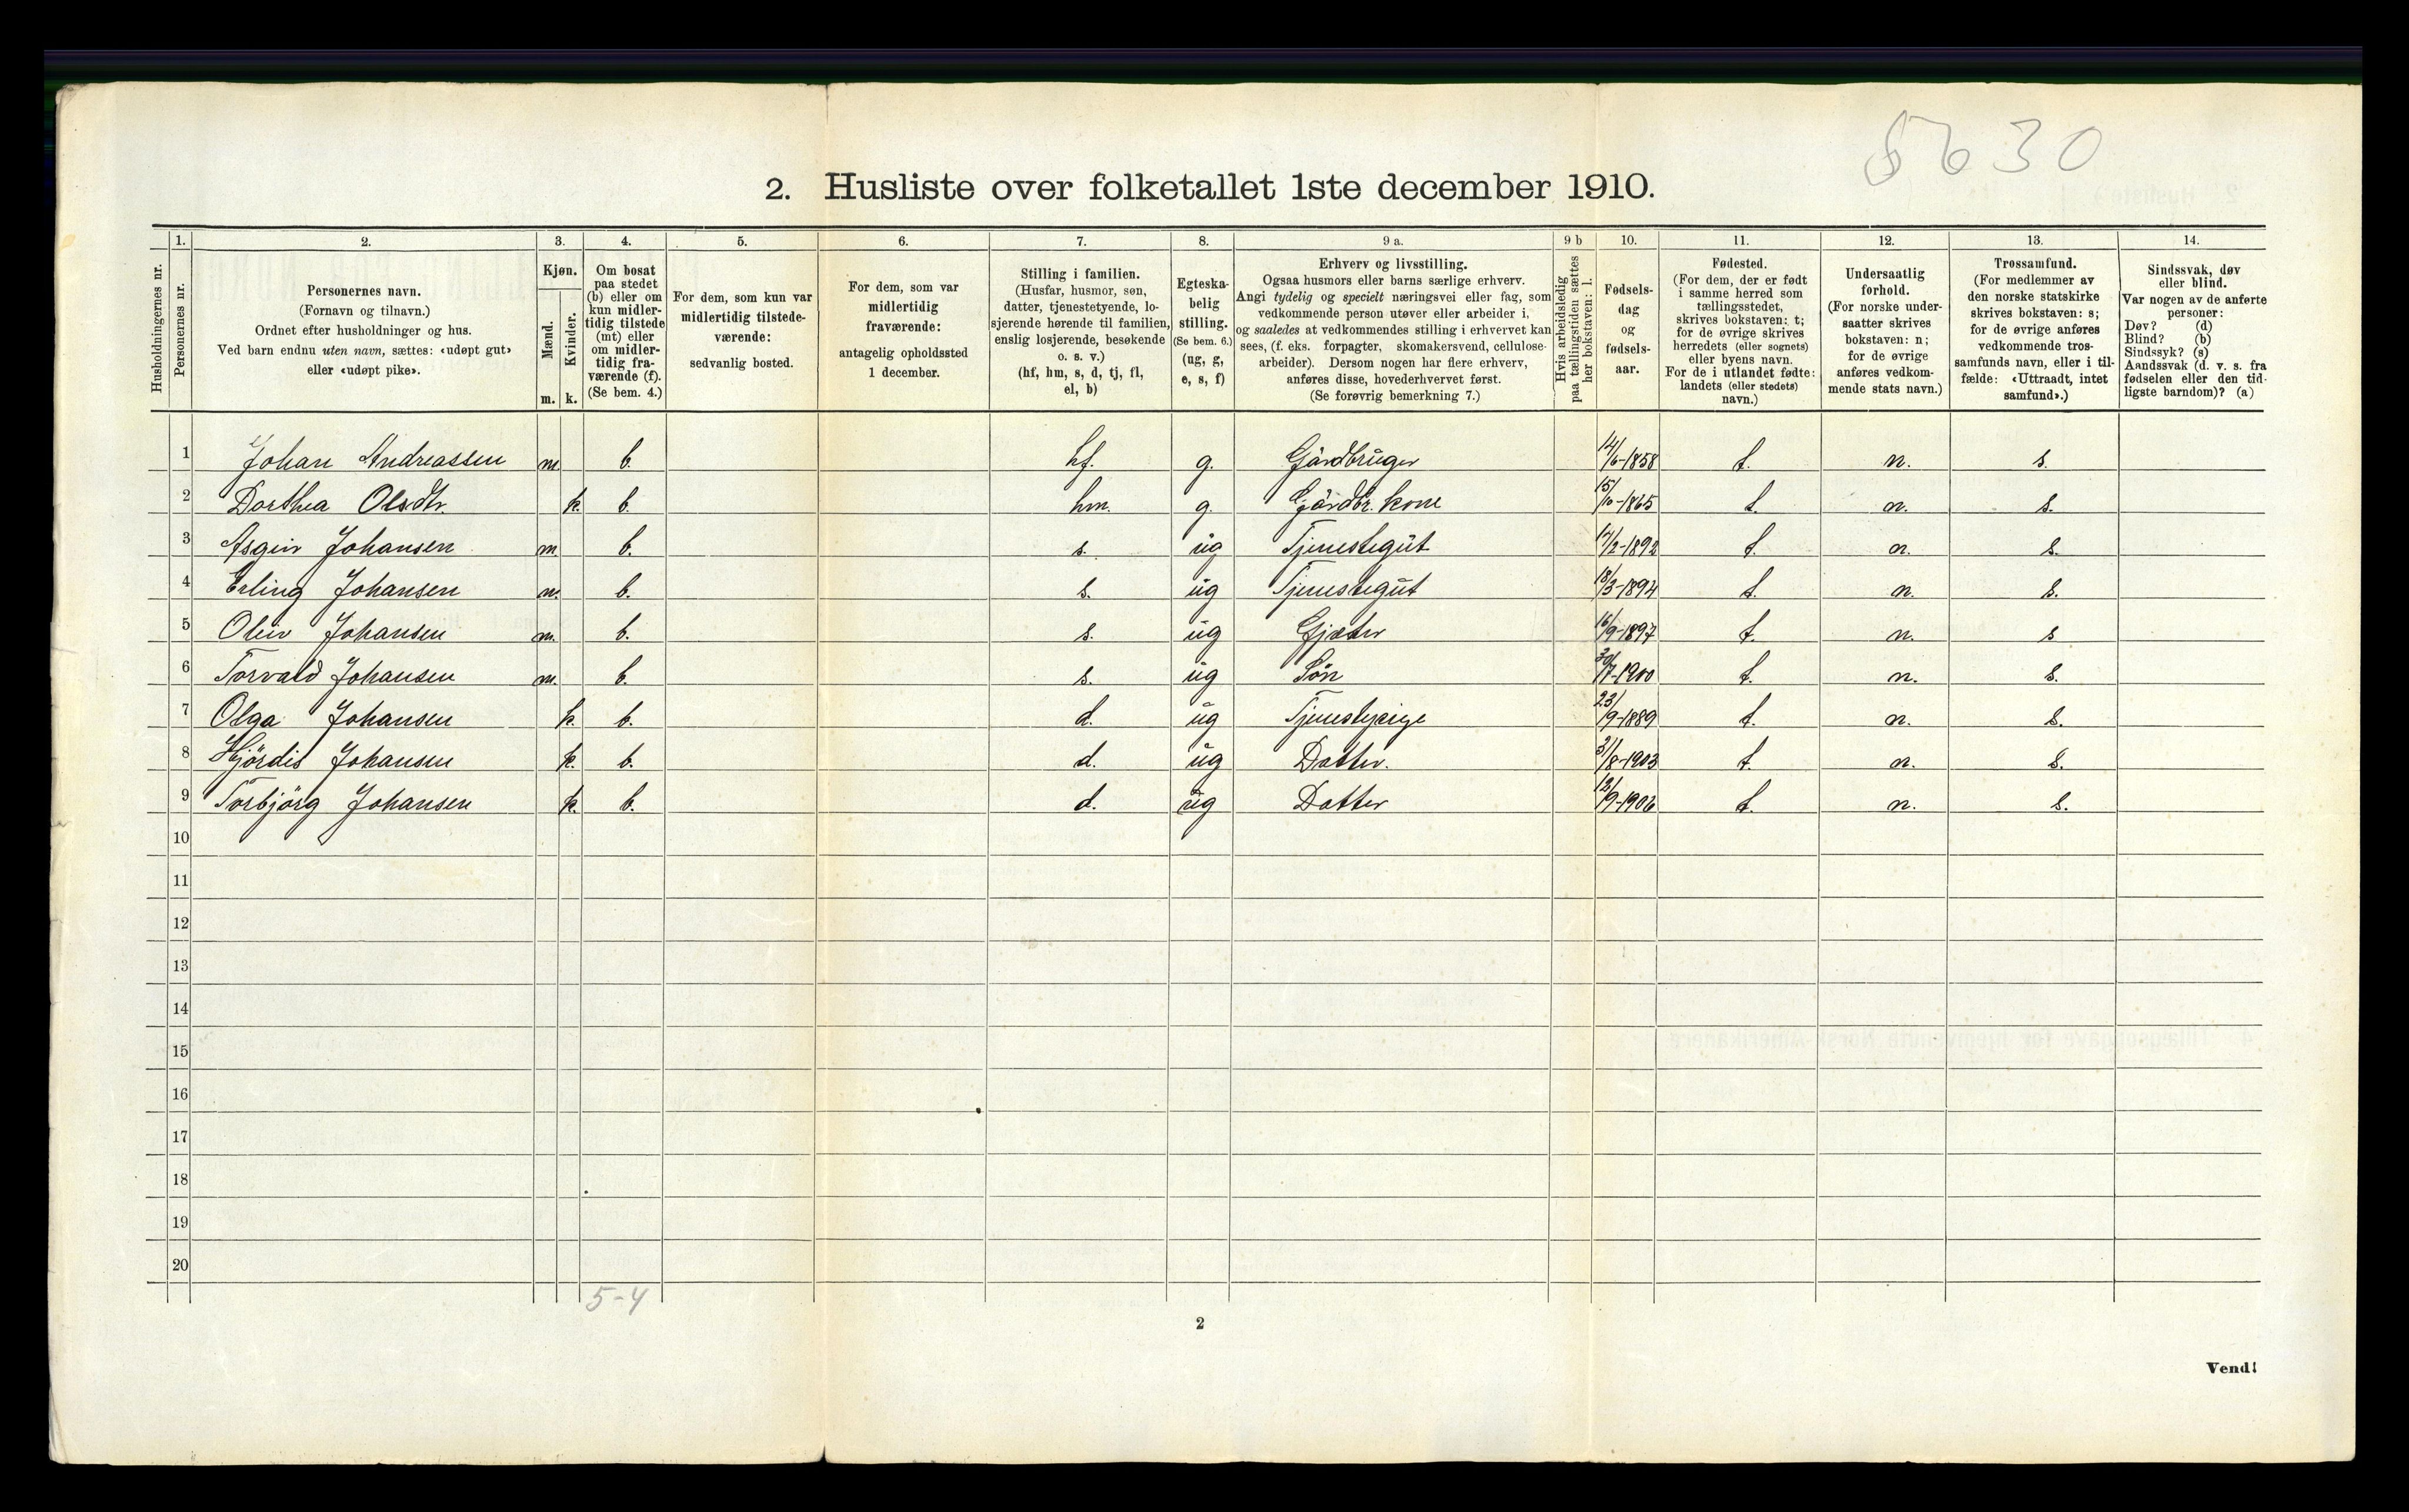 5630
2. Husliste over folketallet 1ste december 1910.
1. 2. 3. 4. 5. 6. 7. 8. 9 a. 9 b 10. 11. 12. 13. 14.
Husholdningernes nr.
Personernes nr.
Personernes navn.
(Fornavn og tilnavn.)
Ordnet efter husholdninger og hus.
Ved barn endnu uten navn, sættes: «udøpt gut»
eller «udøpt pike».
Kjøn.
Mænd.
Kvinder.
m. k.
Om bosat
paa stedet
(b) eller om
kun midler-
tidig tilstede
(mt) eller
om midler-
tidig fra-
værende (f).
(Se bem. 4.)
For dem, som kun var
midlertidig tilstede-
værende:
sedvanlig bosted.
For dem, som var
midlertidig
fraværende:
antagelig opholdssted
1 december.
Stilling i familien.
(Husfar, husmor, søn,
datter, tjenestetyende, lo-
sjerende hørende til familien,
enslig losjerende, besøkende
o. s. v.)
(hf, hm, s, d, tj, fl,
el, b)
Egteska-
belig
stilling.
(Se bem. 6.)
(ug, g,
e, s, f)
Erhverv og livsstilling.
Ogsaa husmors eller barns særlige erhverv.
Angi tydelig og specielt næringsvei eller fag, som
vedkommende person utøver eller arbeider i,
og saaledes at vedkommendes stilling i erhvervet kan
sees, (f. eks. forpagter, skomakersvend, cellulose-
arbeider). Dersom nogen har flere erhverv,
anføres disse, hovederhvervet først.
(Se forøvrig bemerkning 7.)
Hvis arbeidsledig
paa tællingstiden sættes
her bokstaven: l.
Fødsels-
dag
og
fødsels-
aar.
Fødested.
(For dem, der er født
i samme herred som
tællingsstedet,
skrives bokstaven: t;
for de øvrige skrives
herredets (eller sognets)
eller byens navn.
For de i utlandet fødte:
landets (eller stedets)
navn.)
Undersaatlig
forhold.
(For norske under-
saatter skrives
bokstaven: n;
for de øvrige
anføres vedkom-
mende stats navn.)
Trossamfund.
(For medlemmer av
den norske statskirke
skrives bokstaven: s;
for de øvrige anføres
vedkommende tros-
samfunds navn, eller i til-
fælde: «Uttraadt, intet
samfund».)
Sindssvak, døv
eller blind.
Var nogen av de anførte
personer:
Døv? (d)
Blind? (b)
Sindssyk? (s)
Aandssvak (d. v. s. fra
fødselen eller den tid-
ligste barndom)? (a)
1 Johan Andreassen m. b. hf. g. Gårdbruger 14/6-1858 t. n. s.
2 Dorthea Olsdtr. k. b. hm. g. Gårdbr. kone 15/10-1865 t. n. s.
3 Asgeir Johansen m. b. s. ug Tjenestegut /2-1892 t. n. s.
4 Erling Johansen m. b. s. ug Tjenestegut 18/3-1894 t. n. s.
5 Oleiv Johansen m. b. s. ug Gjæter 16/9-1897 t. n. s
6 Torvald Johansen m. b. s. ug Søn 30/7-1900 t. n. s.
7 Olga Johansen k. b. d. ug Tjenestepige 23/9-1889 t. n. s.
8 Hjørdis Johansen k. b. d. ug Datter. 31/8-1903 t. n. s.
9 Torbjørg Johansen k. b. d. ug Datter /9-1906 t. n. s.
10
11
12
13
14
15
16
17
18
19
20
5-4
2
Vend!